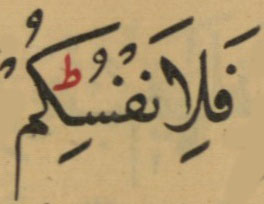 فَلِاَنْفُسِكُمْ ط